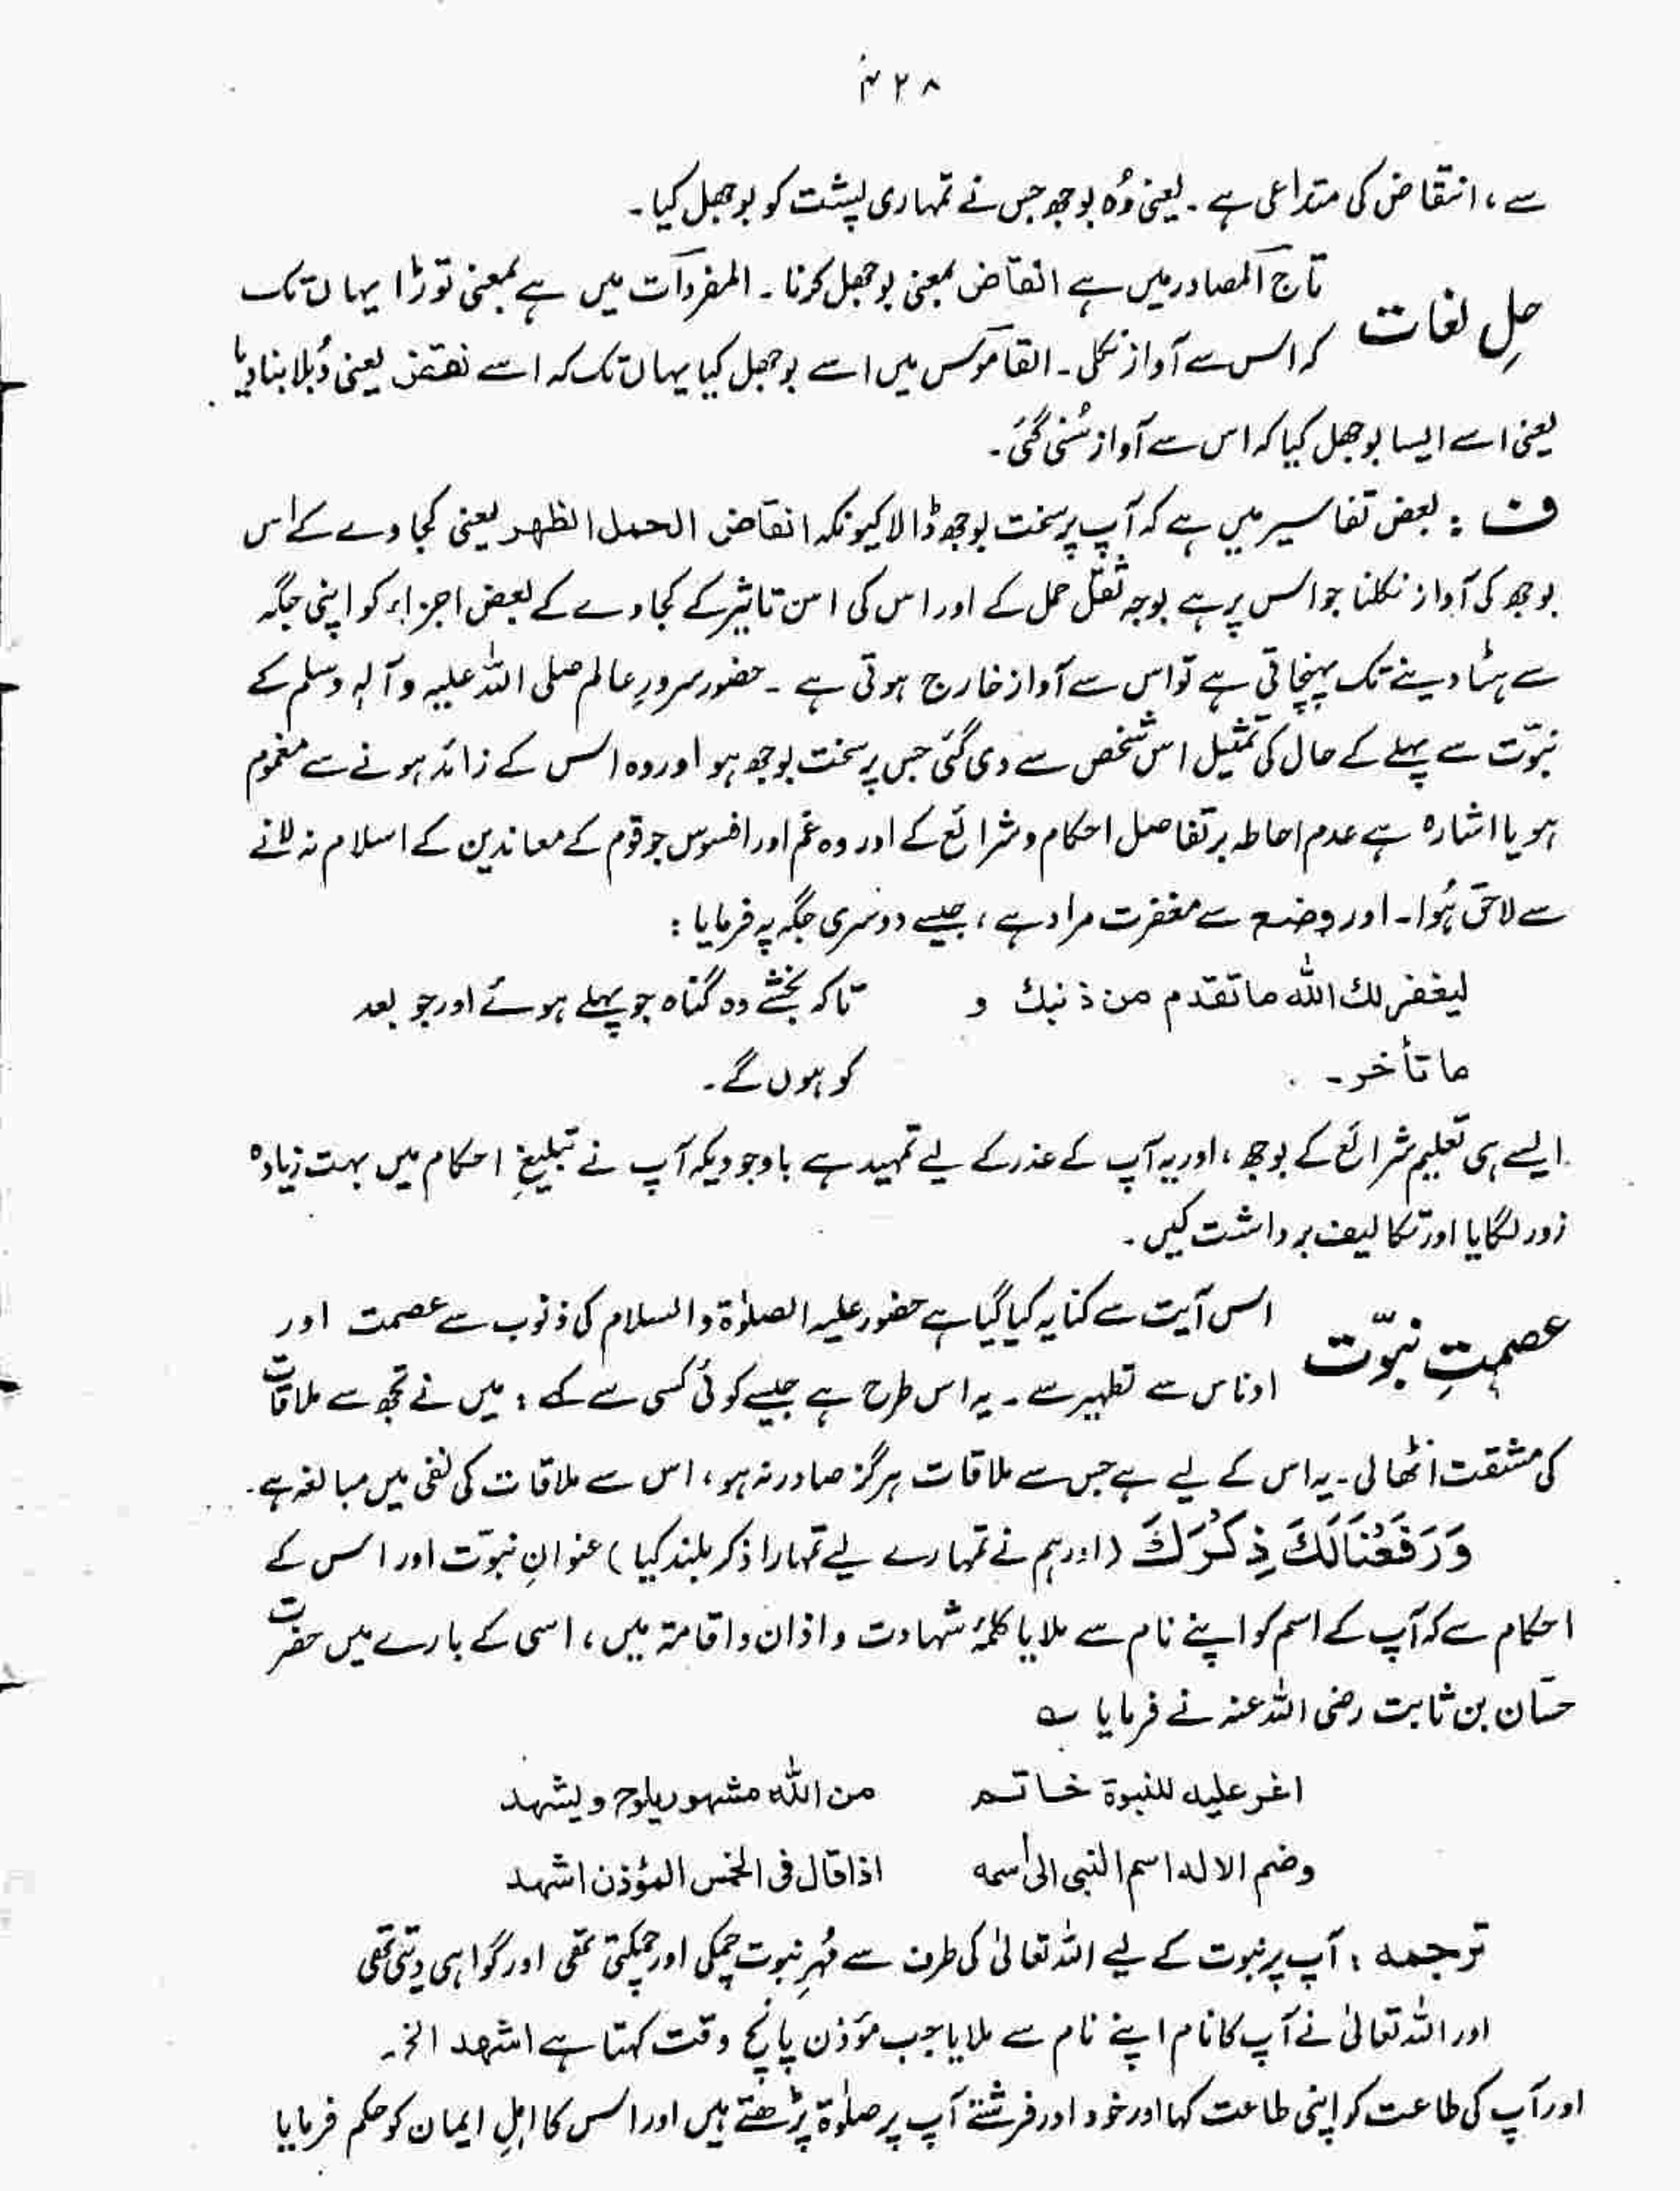 ۴۲۸
سے، انتقاض کی متداعی ہے۔ یعنی وُہ بوجھ جس نے تمہاری پشت کو بوجھل کیا۔
حلِ لغات
تاج المصادر میں ہے انقاض بمعنی بوجھل کرنا۔ المفردات میں ہے بمعنی توڑا یہاں تک
کہ اس سے آواز نکلی۔ القاموس میں اسے بوجھل کیا یہاں تک کہ اسے نقض یعنی دُبلا بنا دیا
یعنی اسے ایسا بوجھل کیا کہ اس سے آواز سُنی گئی۔
ف : بعض تفاسیر میں ہے کہ آپ پر سخت بوجھ ڈالا کیونکہ انقاض الحمل الظهر یعنی کجاوے کے اس
بوجھ کی آواز نکلنا جو اس پر ہے بوجہ ثقل حمل کے اور اس کی اس تاثیر کے کجاوے کے بعض اجزاء کو اپنی جگہ
سے ہٹا دینے تک پہنچاتی ہے تو اس سے آواز خارج ہوتی ہے۔ حضور سرورِ عالم صلی اللہ علیہ وآلہٖ وسلم کے
نبوّت سے پہلے کے حال کی تمثیل اس شخص سے دی گئی جس پر سخت بوجھ ہو اور وہ اس کے زائد ہونے سے مغموم
ہو یا اشارہ ہے عدم احاطہ بر تفاصیل احکام و شرائع کے اور وہ غم اور افسوس جو قوم کے معاندین کے اسلام نہ لانے
سے لاحق ہُوا۔ اور وضع سے مغفرت مراد ہے، جیسے دوسری جگہ پہ فرمایا :
ليغفر لك الله ما تقدم من ذنبك و تاکہ بخشے وہ گناہ جو پہلے ہوئے اور جو بعد
ما تأخر۔ کو ہوں گے۔
ایسے ہی تعلیم شرائع کے بوجھ، اور یہ آپ کے عذر کے لیے تمہید ہے باوجودیکہ آپ نے تبلیغِ احکام میں بہت زیادہ
زور لگایا اور تکالیف برداشت کیں۔
عصمتِ نبوّت
اس آیت سے کنایہ کیا گیا ہے حضور علیہ الصلوٰۃ والسلام کی ذنوب سے عصمت اور
ادناس سے تطہیر سے۔ یہ اس طرح ہے جیسے کوئی کسی سے کہے : میں نے تجھ سے ملاقات
کی مشقت اٹھالی۔ یہ اس کے لیے ہے جس سے ملاقات ہرگز صادر نہ ہو، اس سے ملاقات کی نفی میں مبالغہ ہے۔
وَرَفَعْنَا لَكَ ذِكْرَكَ (اور ہم نے تمہارے لیے تمہارا ذکر بلند کیا) عنوانِ نبوّت اور اس کے
احکام سے کہ آپ کے اسم کو اپنے نام سے ملایا کلمۂ شہادت و اذان و اقامۃ میں، اسی کے بارے میں حضرت
حسّان بن ثابت رضی اللہ عنہ نے فرمایا ؎
اغر عليه للنبوة خاتم من الله مشهور يلوح ويشهد
وضم الاله اسم النبى الى اسمه اذا قال فى الخمس المؤذن اشهد
ترجمہ : آپ پر نبوت کے لیے اللہ تعالیٰ کی طرف سے مُہرِ نبوت چمکی اور چمکتی تھی اور گواہی دیتی تھی
اور اللہ تعالیٰ نے آپ کا نام اپنے نام سے ملایا جب مؤذن پانچ وقت کہتا ہے اشهد الخ۔
اور آپ کی طاعت کو اپنی طاعت کہا اور خود اور فرشتے آپ پر صلوٰۃ پڑھتے ہیں اور اس کا اہلِ ایمان کو حکم فرمایا